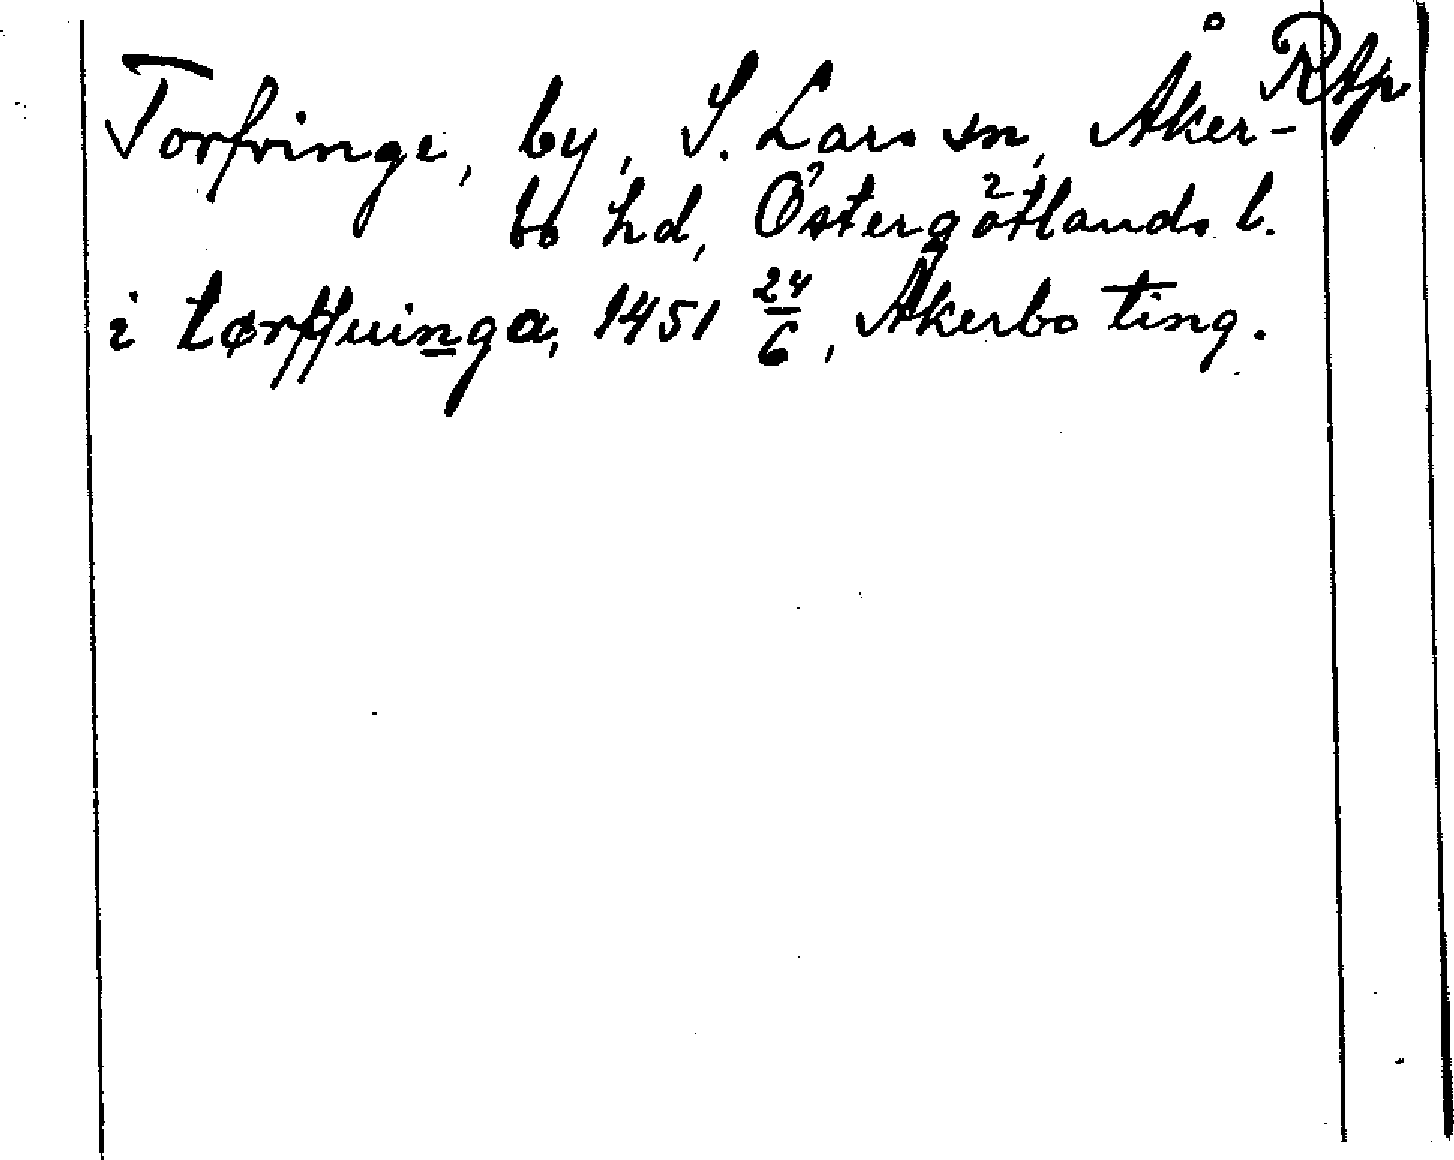 Rtp
Torfvinge, by, S. Lars sn, Åker-
bo hd, Östergötlands l.
i tørffuinga, 1451 24/6, Åkerbo ting.